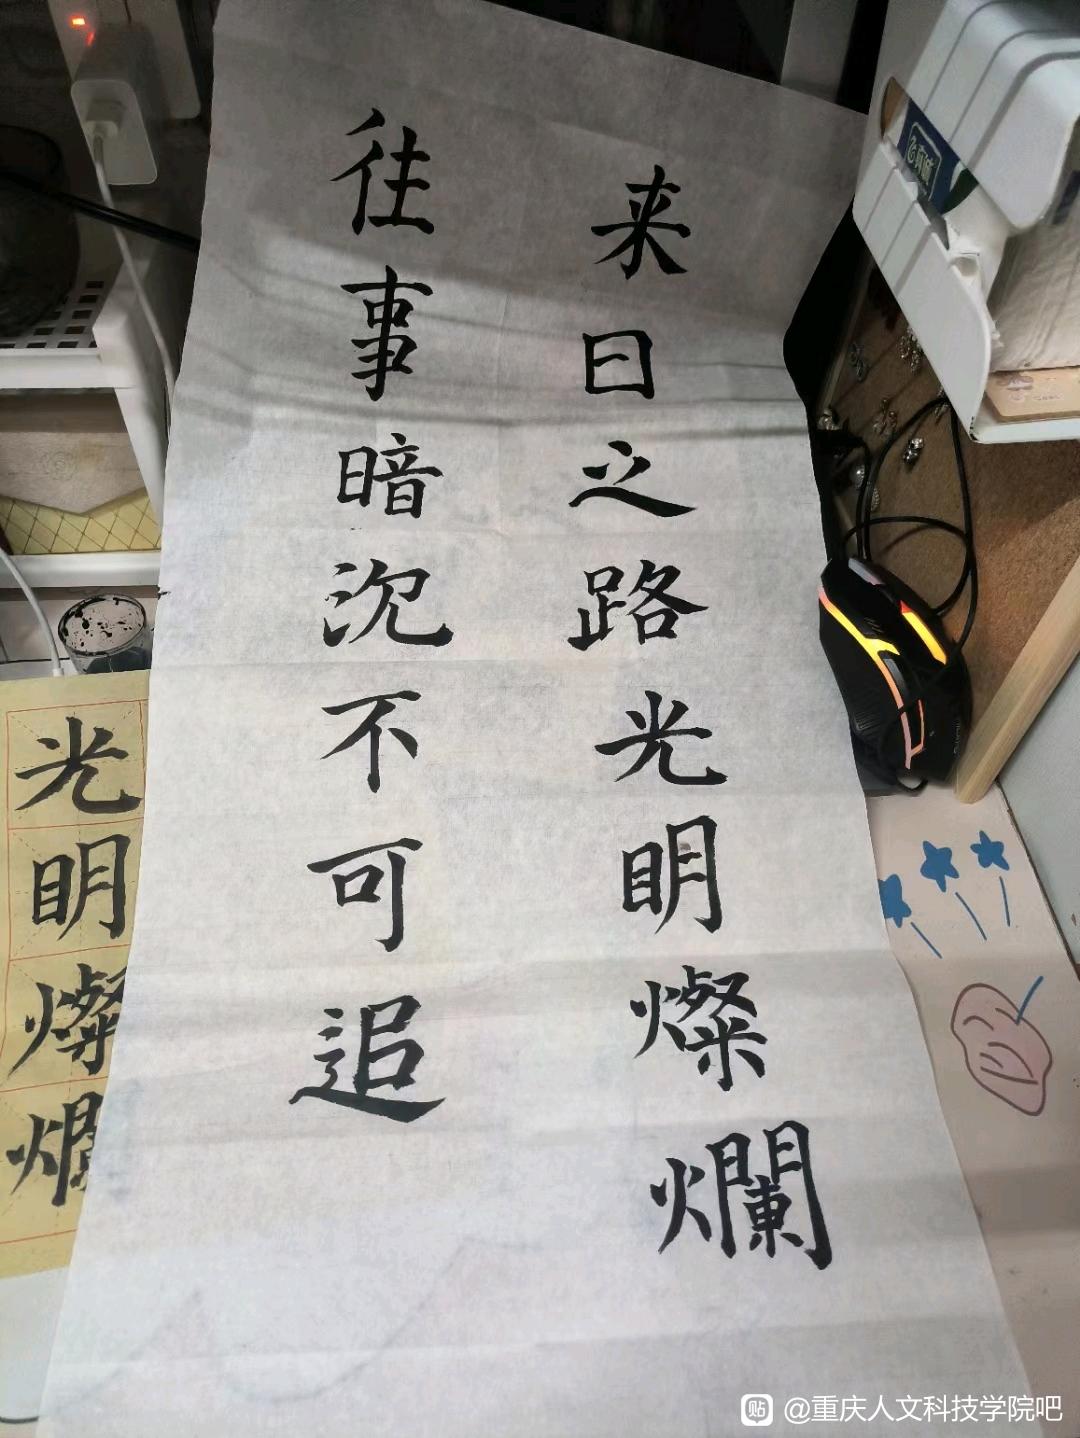 来日之路光明燦爛
往事暗沉不可追
光明燦爛
贴 @重庆人文科技学院吧